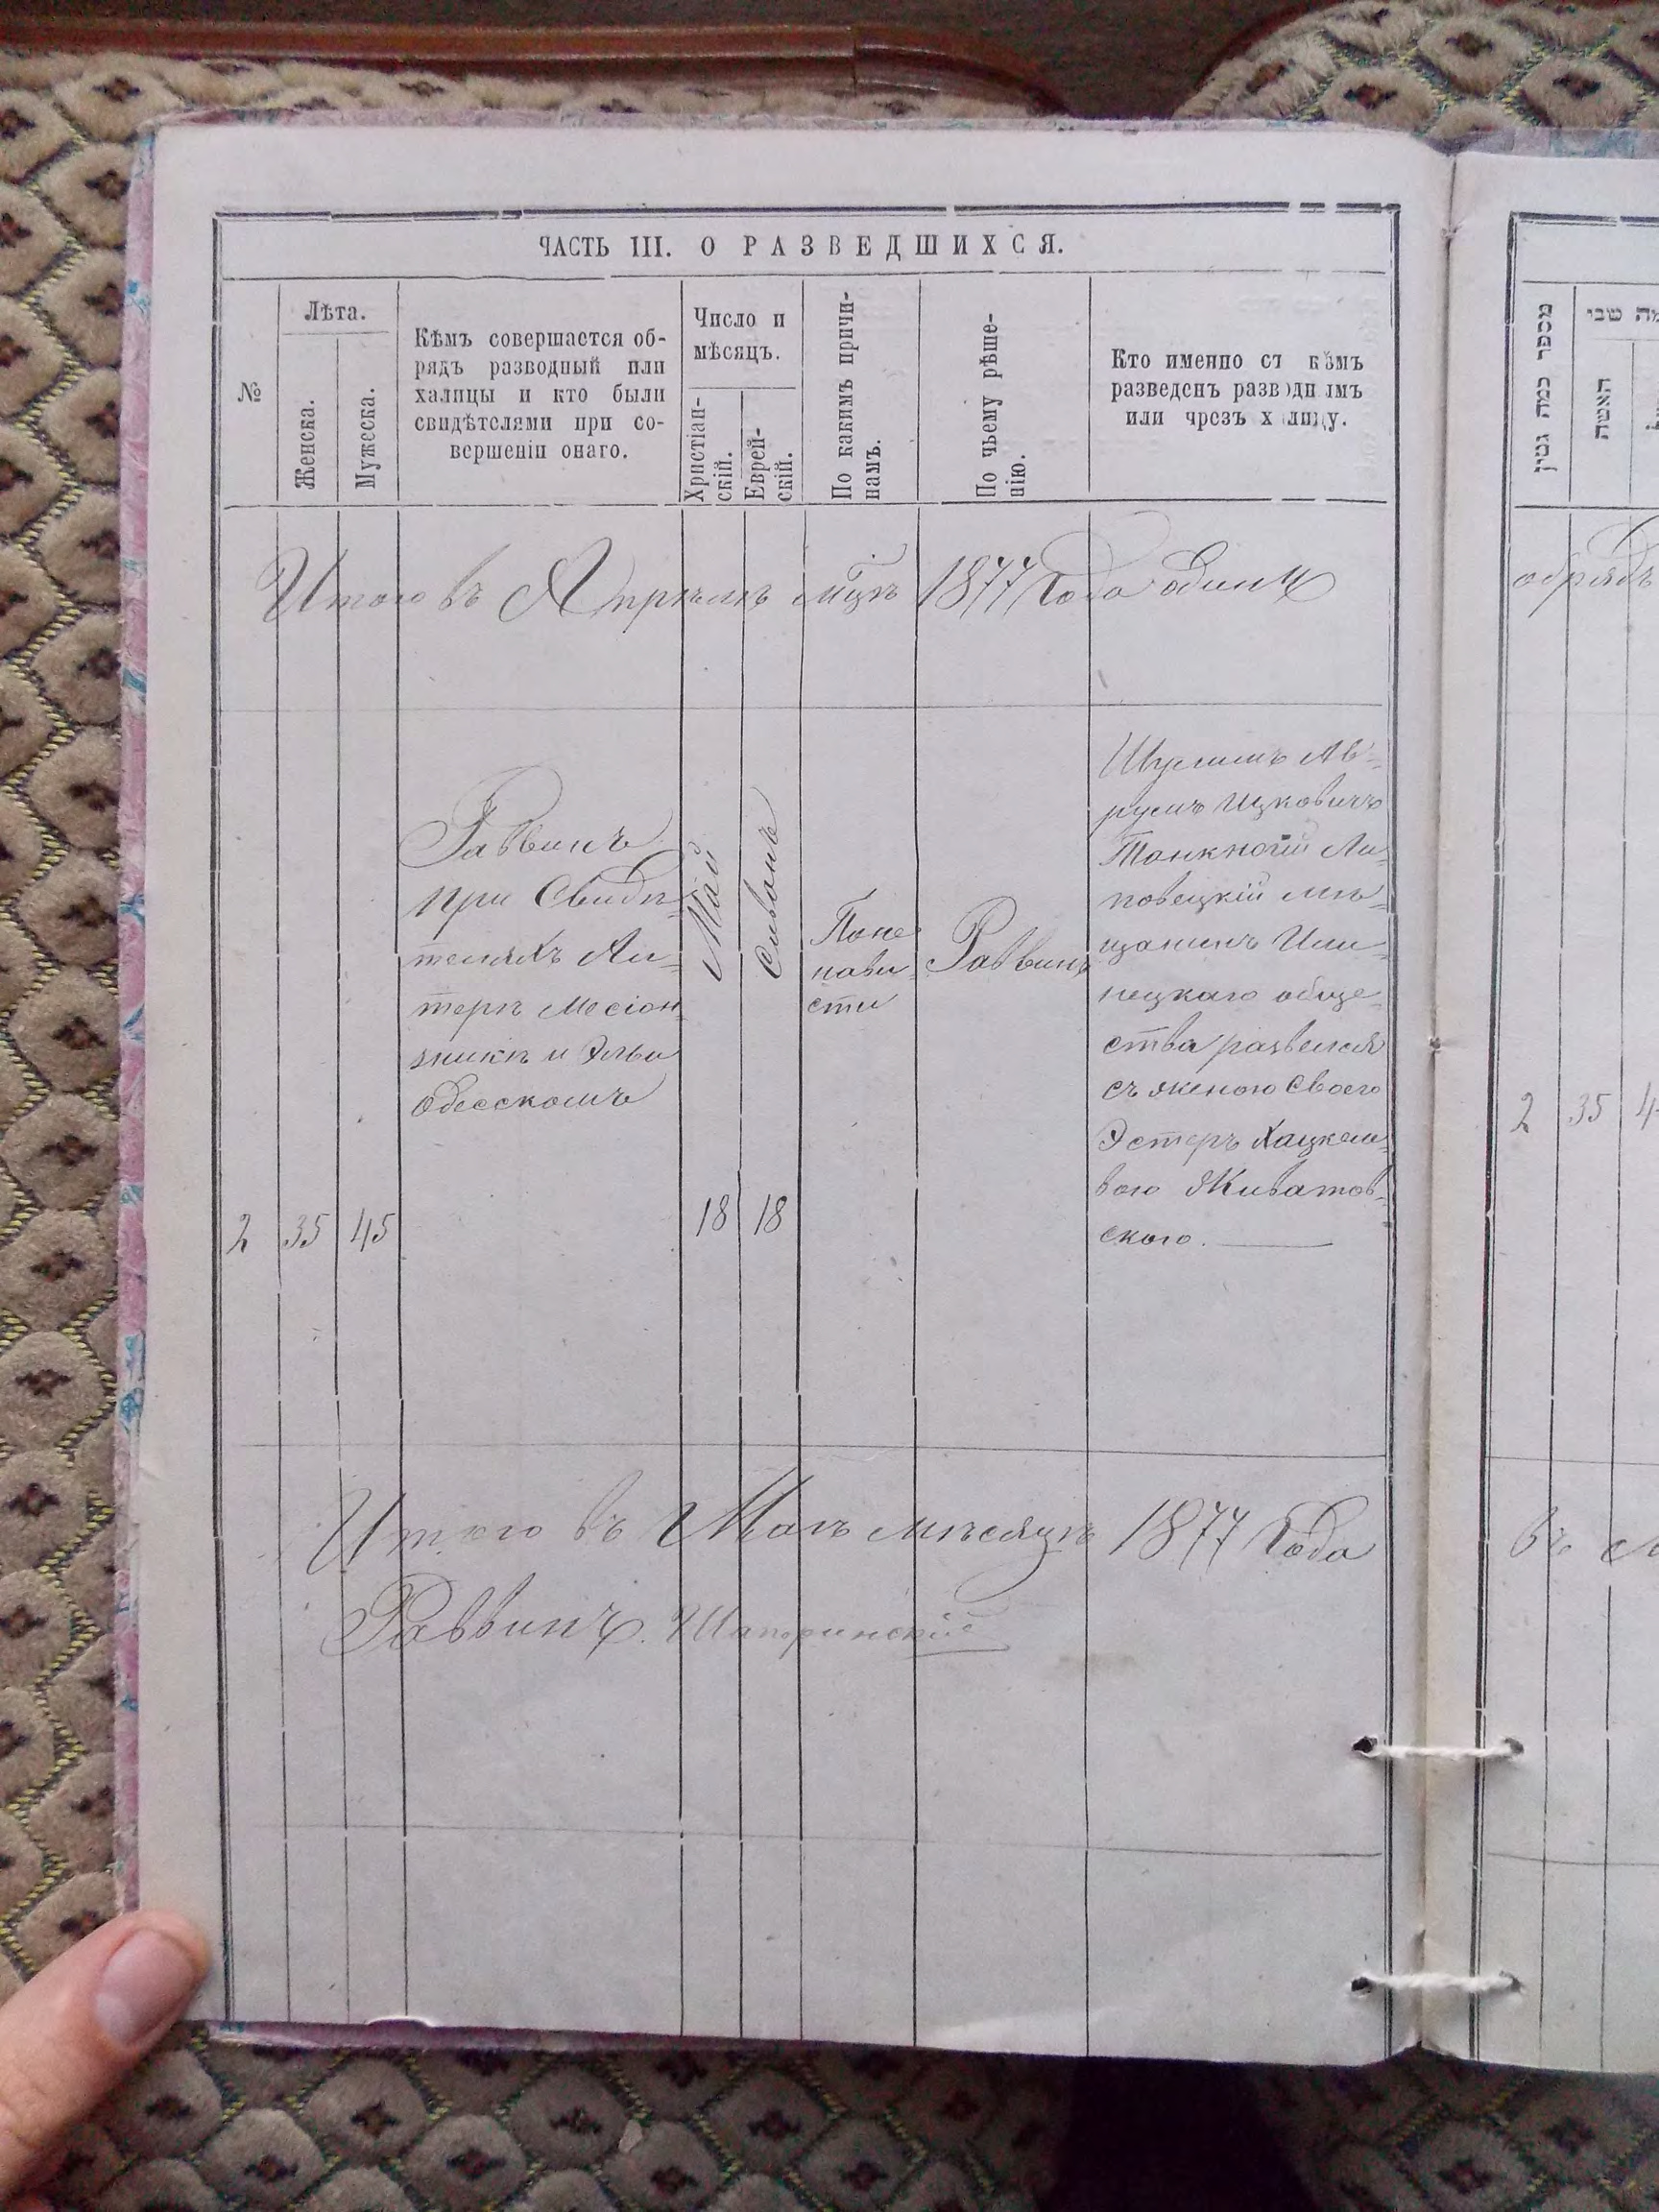 ЧАСТЬ III. О РАЗВЕДШИХСЯ.
№
Лѣта.
Женска.
Мужеска.
Кѣмъ совершается об-
рядъ разводный или
халицы и кто были
свидѣтелями при со-
вершеніи онаго.
Число и
мѣсяцъ.
Христіан-
скій.
Еврей-
скій.
По какимъ причи-
намъ.
По чьему рѣше-
нію.
Кто именно съ кѣмъ
разведенъ разводнымъ
или чрезъ халицу.
Итого въ Апрѣлѣ мцѣ 1877 Года одинъ
2
35
45
Раввинъ
при Свидѣ-
теляхъ Ли-
терѣ
и Эльи
Одесскомъ
Май
18
Сивонъ
18
Поне
нави
сти
Раввинъ
Шулимъ Ав-
румъ Ицковичъ
Ли-
повецкій мѣ-
щанинъ Или-
нецкаго обще-
ства развелся
съ женою Своего
Эстеръ Хацкеле-
вою Животов-
ского.
Итого въ Маѣ мѣсяцѣ 1877 Года
Раввинъ.
מספר כמה גטין
האשה
обрядъ
2
35
въ